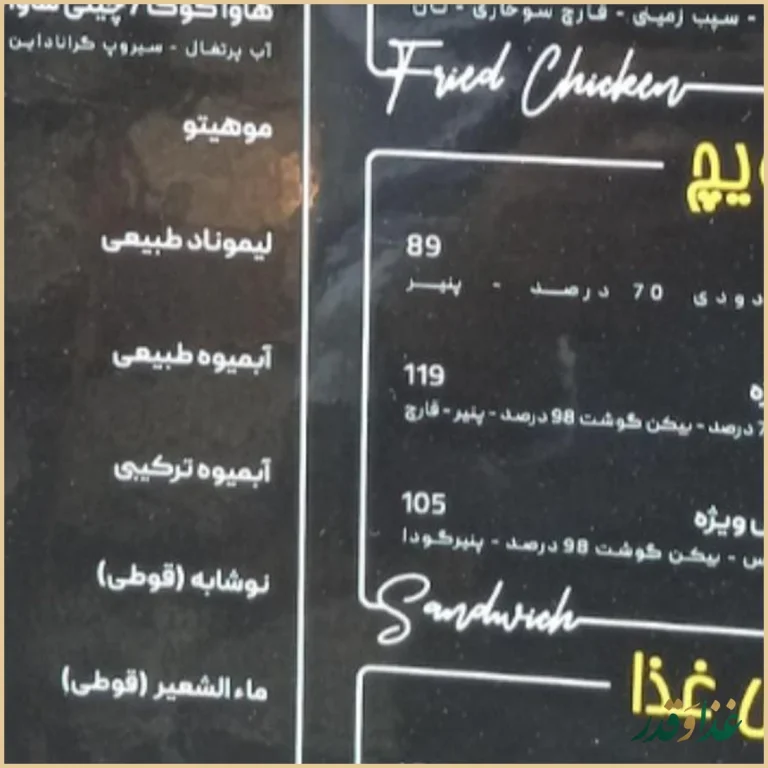 آب پرتغال - سیروپ گراناداین
موهیتو
لیموناد طبیعی
آبمیوه طبیعی
آبمیوه ترکیبی
نوشابه (قوطی)
ماءالشعیر (قوطی)
- سیب زمینی - قارچ سوخاری - نان
Fried Chicken
89
70 درصد - پنیر
119
درصد - بیکن گوشت 98 درصد - پنیر - قارچ
ویژه
105
- بیکن گوشت 98 درصد - پنیرگودا
Sandwich
غذا
غذا و قدر